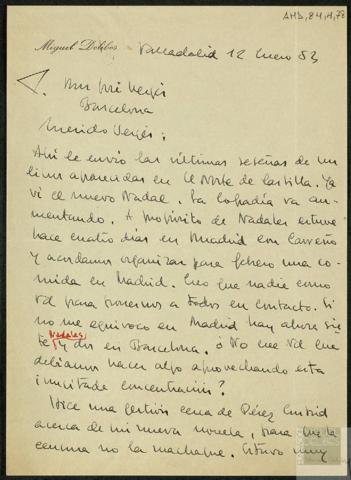 AMD,84,4,72
Miguel Delibes
Valladolid 12 Enero 53
Don José Vergés
Barcelona
Querido Vergés:
Ahí le envío las últimas reseñas de un
libro aparecidas en El Norte de Castilla. Ya
vi el nuevo Nadal. La Cofradía va au-
mentando. A propósito de Nadales estuve
hace cuatro días en Madrid con Carreño
y acordamos organizar para febrero una co-
mida en Madrid. Creo que nadie como
Vd para ponernos a todos en contacto. Si
no me equivoco en Madrid hay ahora sie-
Nadales
te y dos en Barcelona. ¿No cree Vd que
debíamos hacer algo aprovechando esta
inusitada concentración?
Hice una gestión cerca de Pérez Embid
acerca de mi nueva novela, para que la
censura no la machaque. Estuvo muy